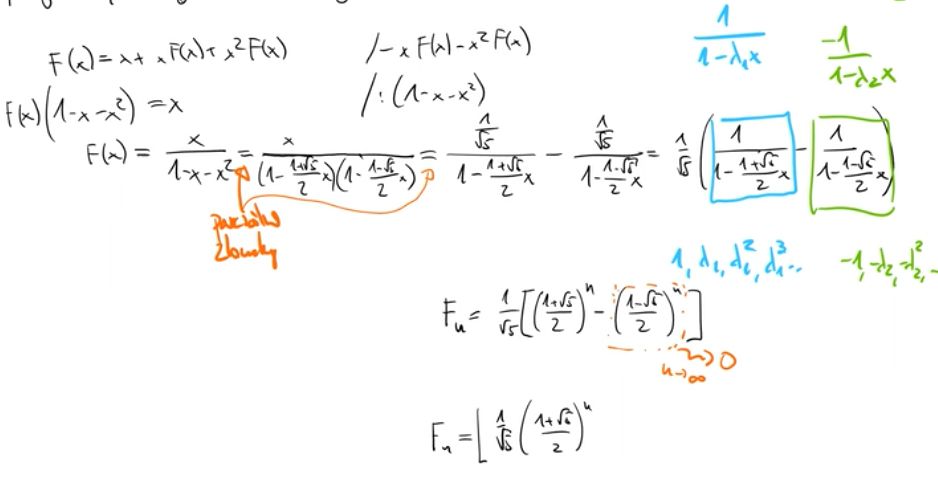 F(x) = x + xF(x) + x²F(x) /-x F(x) - x² F(x)
F(x)(1-x-x²) = x /:(1-x-x²)
\frac{1}{1-λ₁x} \frac{-1}{1-λ₂x}
F(x) = \frac{x}{1-x-x²} = \frac{x}{(1-\frac{1+√5}{2}x)(1-\frac{1-√5}{2}x)} = \frac{\frac{1}{√5}}{1-\frac{1+√5}{2}x} - \frac{\frac{1}{√5}}{1-\frac{1-√5}{2}x} = \frac{1}{√5}(\frac{1}{1-\frac{1+√5}{2}x} - \frac{1}{1-\frac{1-√5}{2}x})
parciální
zlomky
1, λ₁, λ₁², λ₁³... -1, -λ₂, -λ₂², ...
Fₙ = \frac{1}{√5}[(\frac{1+√5}{2})ⁿ - (\frac{1-√5}{2})ⁿ]
→ 0
n→∞
Fₙ = ⌊\frac{1}{√5}(\frac{1+√5}{2})ⁿ